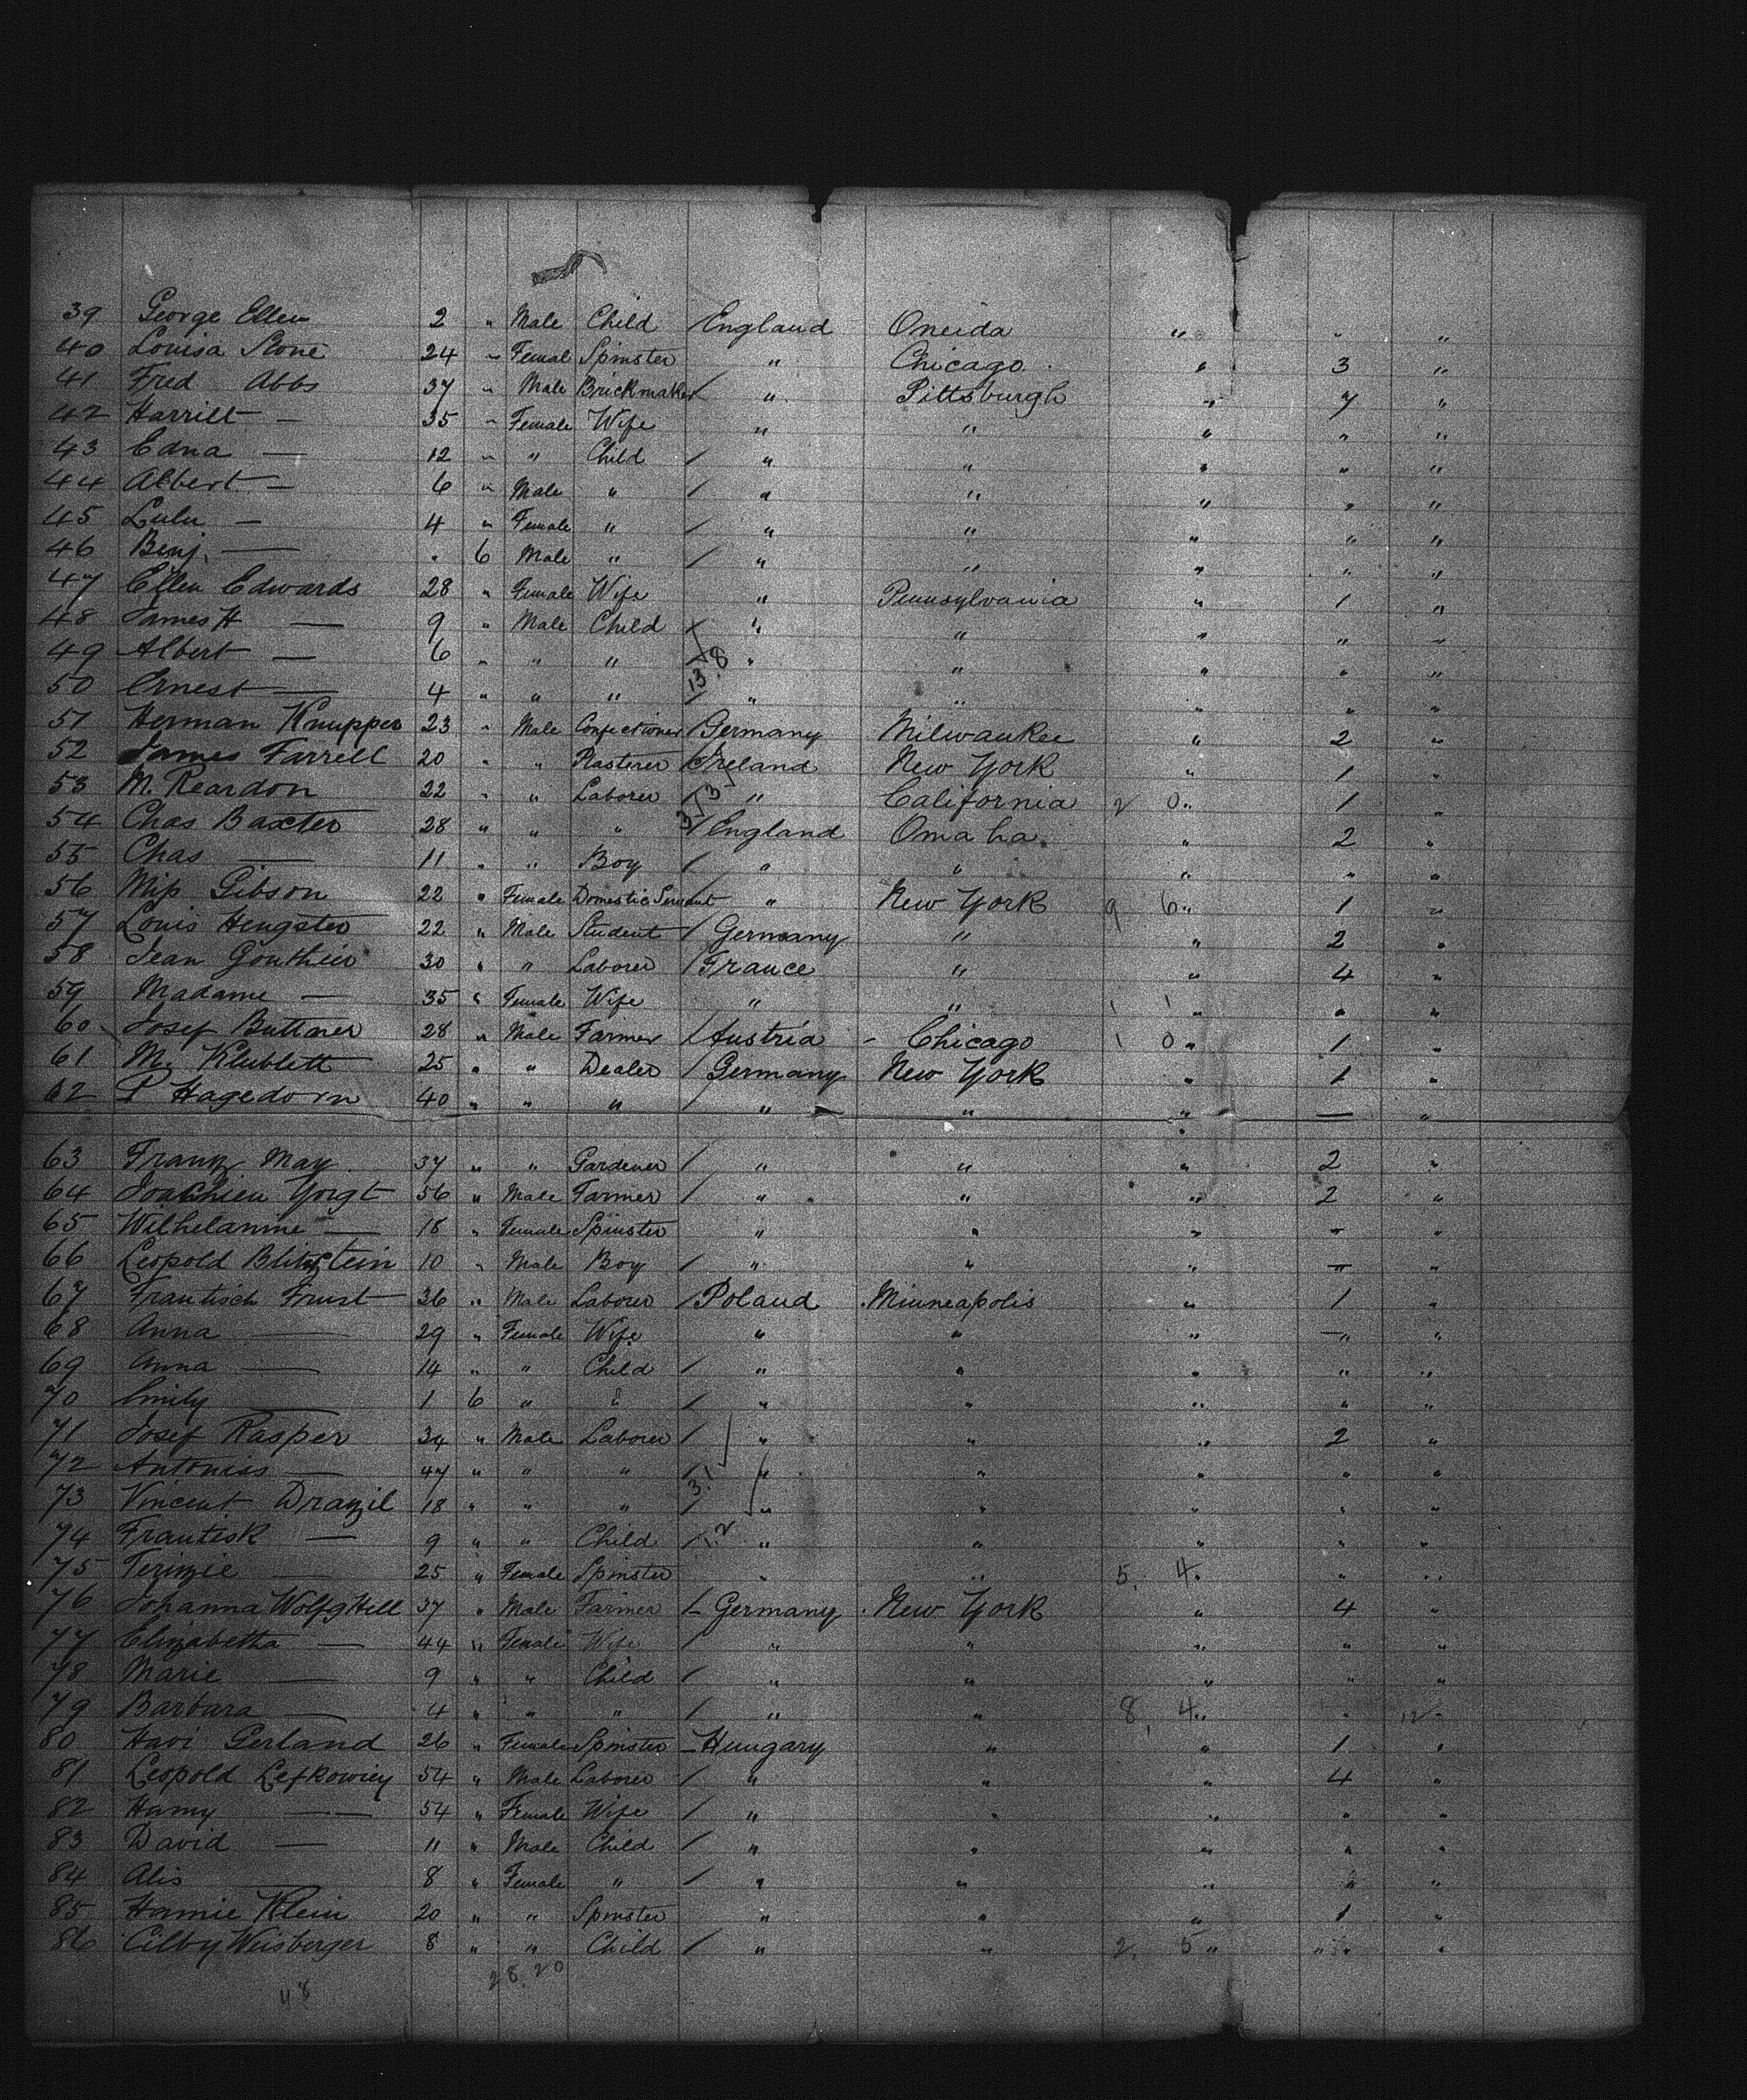 39 George Ellen 2 " Male Child England Oneida " " "
40 Louisa Stone 24 " Femal Spinster " Chicago " 3 "
41 Fred Abbs 37 " Male Brickmaker " Pittsburgh " 7 "
42 Harriet — 35 " Female Wife " " " " "
43 Edna — 12 " " Child " " " " "
44 Albert — 6 " Male " " " " " "
45 Lulu — 4 " Female " " " " " "
46 Benj. — " 6 Male " " " " " "
47 Ellen Edwards 28 " Female Wife " Pennsylvania " 1 "
48 James H — 9 " Male Child " " " " "
49 Albert — 6 " " " " " " " "
13.8
50 Ernest — 4 " " " " " " " "
51 Herman Knupper 23 " Male Confectioner Germany Milwaukee " 2 "
52 James Farrell 20 " " Plasterer Ireland New York " 1 "
53 M. Reardon 22 " " Laborer " California 2 0 " 1 "
54 Chas Baxter 28 " " " England Omaha " 2 "
55 Chas — 11 " " Boy " " " " "
56 Miss Gibson 22 " Female Domestic Servant " New York 9 6 " 1 "
57 Louis Hengster 22 " Male Student Germany " " 2 "
58 Jean Gouthier 30 " " Laborer France " " 4 "
59 Madame — 35 " Female Wife " " 1 1 " " "
60 Josef Buttner 28 " Male Farmer Austria - Chicago 1 0 " 1 "
61 M. Klublett 25 " " Dealer Germany New York " 1 "
62 P Hagedorn 40 " " " " " " — "
63 Franz May 37 " " Gardener " " " 2 "
64 Joachiem Yorgt 56 " Male Farmer " " " 2 "
65 Wilhelamine — 18 " Female Spinster " " " " "
66 Leopold Blitzstein 10 " Male Boy " " " " "
67 Frantisch Frust 36 " Male Laborer Poland Minneapolis " 1 "
68 Anna — 29 " Female Wife " " " " "
69 Anna — 14 " " Child " " " " "
70 Emily — 1 6 " " " " " " "
71 Josef Kasper 34 " Male Laborer " " " 2 "
72 Antoniss — 47 " " " " " " " "
3.1
73 Vincent Drazil 18 " " " " " " " "
74 Frantisk — 9 " " Child " " " " "
75 Terizie — 25 " Female Spinster " " 5. 4 " " "
76 Johanna Wolfg Hell 37 " Male Farmer Germany New York " 4 "
77 Elizabetha — 44 " Female Wife " " " " "
78 Marie — 9 " " Child " " " " "
79 Barbara — 4 " " " " " 8, 4 " " 12 "
80 Havi Gerland 26 " Female Spinster Hungary " " 1 "
81 Leopold Lefkowicy 54 " Male Laborer " " " 4 "
82 Hamy — 54 " Female Wife " " " " "
83 David — 11 " Male Child " " " " "
84 Alis — 8 " Female " " " " " "
85 Hamie Klein 20 " " Spinster " " " 1 "
86 Cilby Weisberger 8 " " Child " " 2. 5 " " "
28.20
48